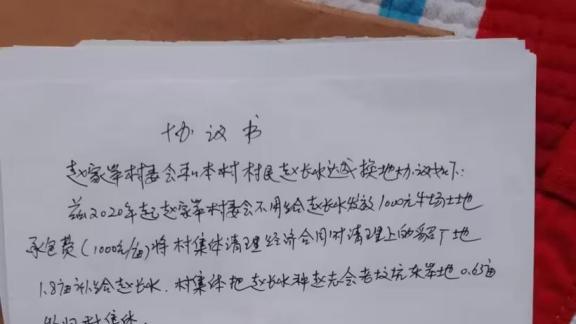 协议书
赵家岸村委会和本村村民赵长水达成换地协议如下:
兹2020年起赵家岸村委会不用给赵长水发放1000元牛场土地
承包费(1000元/亩)将村集体清理经济合同时清理上的 地
1.8亩补给赵长水.村集体把赵长水种赵志会老坟坑灰岸地0.65亩
归村集体.